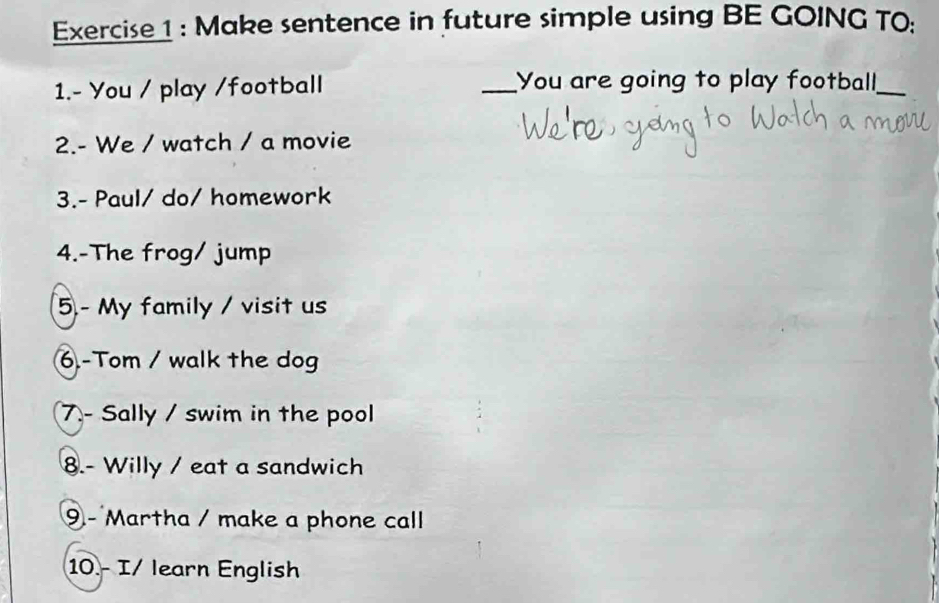 Exercise 1 : Make sentence in future simple using BE GOING TO:
1.- You / play /football ___You are going to play football__
2.- We / watch / a movie We're going to Watch a movie
3.- Paul/ do/ homework
4.-The frog/ jump
5.- My family / visit us
6.-Tom / walk the dog
7.- Sally / swim in the pool
8.- Willy / eat a sandwich
9.- Martha / make a phone call
10.- I/ learn English